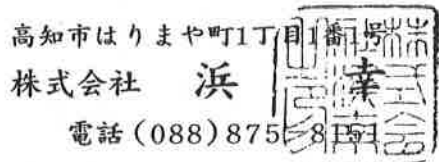 高知市はりまや町1丁目1番1号
株式会社 浜幸
電話(088)875-8151